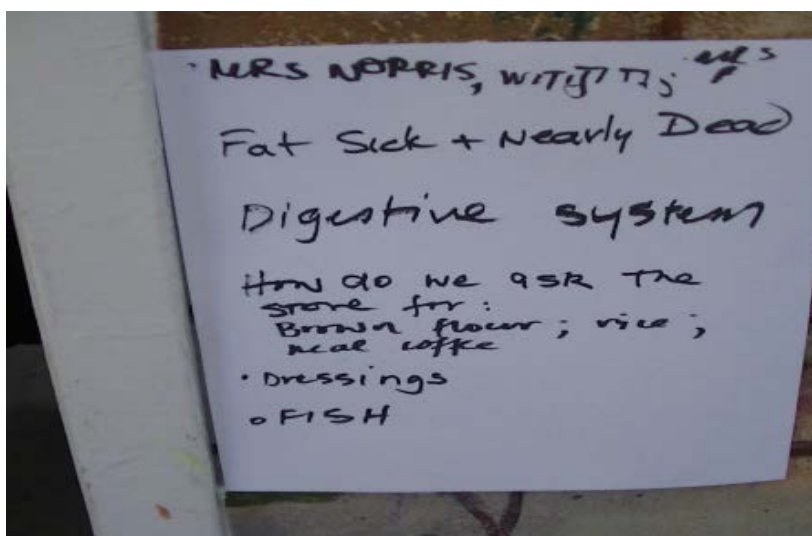 · MRS NORRIS,
Fat Sick + Nearly Dead
Digestive system
How do we ask the
store for:
Brown flower; rice;
real coffe
· Dressings
o FISH